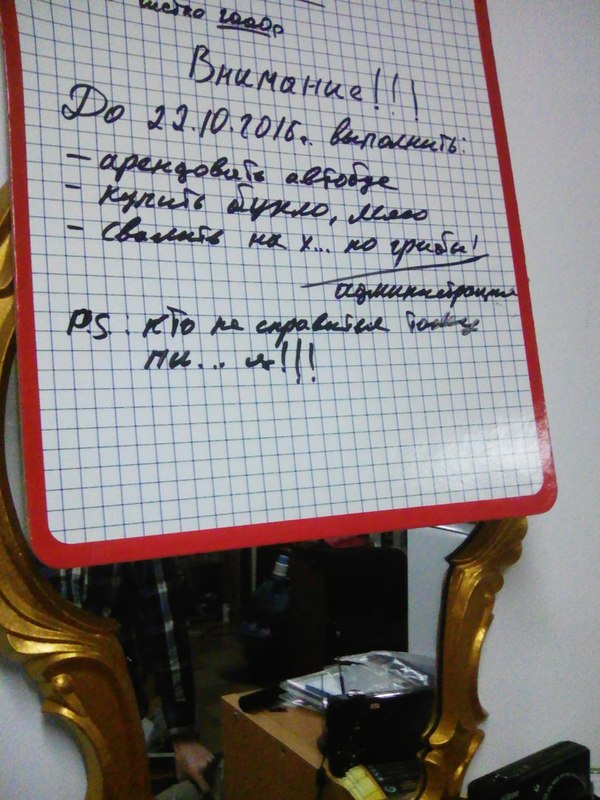 чистка
Внимание!!!
До 22.10.2016г. выполнить:
- арендовать автобус
- купить бухло, мясо
- свалить на х... по грибы!
администрация
PS: кто не справится тому
пи... я!!!